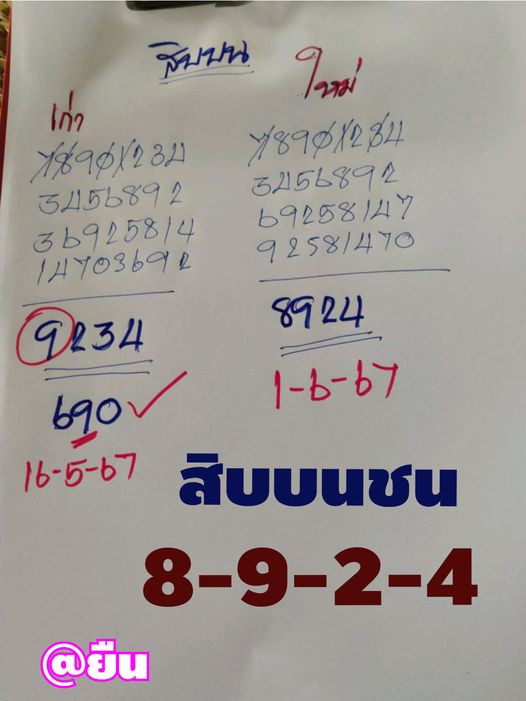 สิบบน
เก่า
78901234
3456892
36925814
14703692
9234
690
16-5-67
ใหม่
78901234
3456892
69258147
92581470
8924
1-6-67
สิบบนชน
8-9-2-4
@ยืน